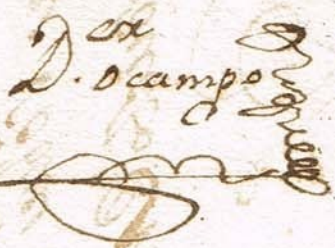 D. ocampo